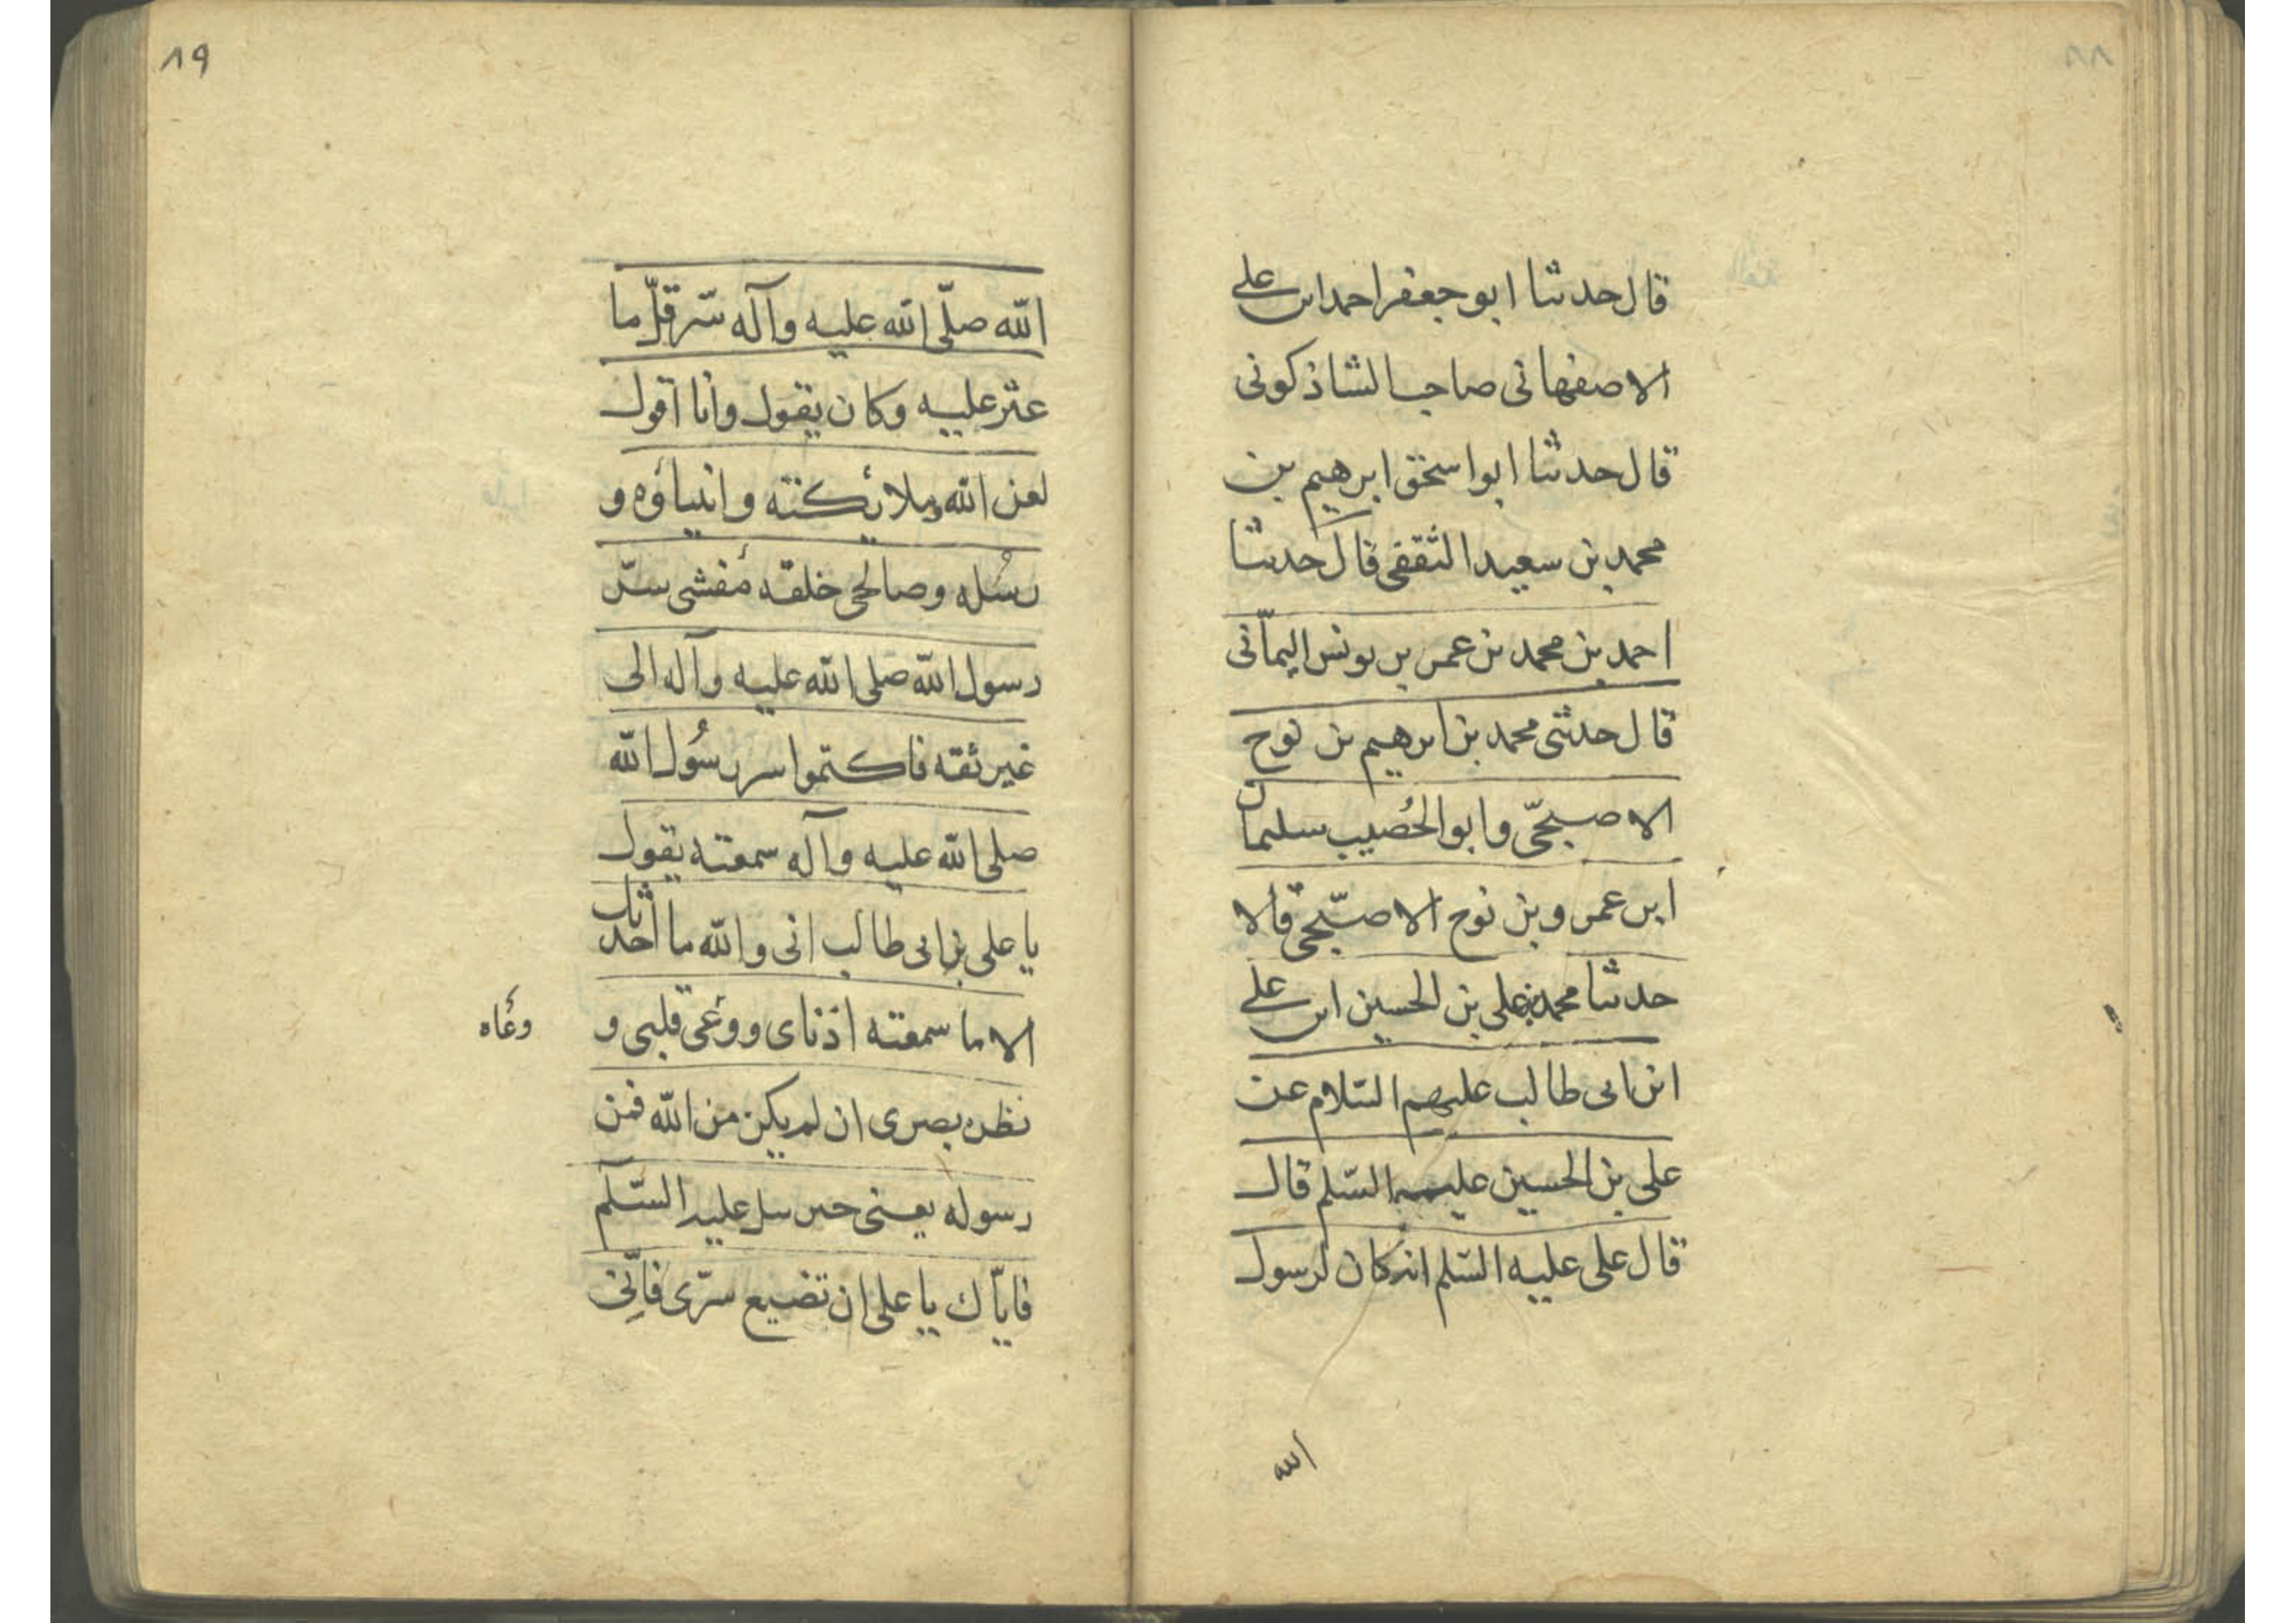 ٨٨
قال حدثنا ابو جعفر احمد ابن على
الاصفهانى صاحب الشاذكونى
قال حدثنا ابو اسحق ابرهيم بن
محمد بن سعيد الثقفى قال حدثنا
احمد بن محمد بن عمر بن يونس اليمانى
قال حدثنى محمد بن ابرهيم بن نوح
الاصبحى وابو الخُصيب سليمان
ابن عمرو بن نوح الاصبحى قالا
حدثنا محمد بن على بن الحسين ابن على
ابن ابى طالب عليهم السّلام عن
على بن الحسين السّلم قال
قال على عليه السّلم انه كان لرسول
الله
٨٩
الله صلّى الله عليه وآله سّر قلّ ما
عثر عليه وكان يقول وانا اقول
لعن الله وملائكته وانبياؤه و
رسُله وصالحى خلقه مُفشى سرّ
رسول الله صلى الله عليه وآله الى
غير ثقه فاكتموا سر رسُول الله
صلى الله عليه وآله سمعته يقول
يا على بن ابى طالب انى والله ما احدثك
الا ما سمعته اذناى ووعى قلبى و
وعَاه
نظره بصرى ان لم يكن من الله فمن
رسوله يعنى جبرئيل عليه السّلم
فايّاك يا على ان تضيع سرّى فانّى